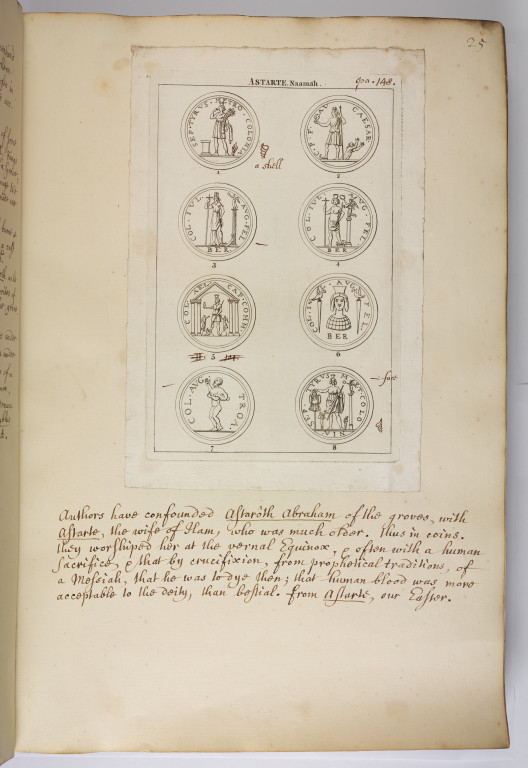 25
ASTARTE. Naamah.
148.
SEPTYRUS. METRO. COLONIA
1
a shell
CAESAR
2
COL. IVL. AUG. FEL
BER
3
COL. IVL. AUG. FEL
BER
4
COL. AEL. CAP. COMM.
5
COL. IV. AUG. FEL
BER
6
COL. AUG. TROA.
7
SEP. TYRUS. MET. COLO
NIA
8
Authors have confounded Astaroth Abraham of the groves, with
Astarte, the wife of Ham, who was much older. thus in coins.
they worshiped her at the vernal Equinox, & often with a human
sacrifice, & that by crucifixion, from prophetical traditions, of
a Messiah, that he was to dye then; that human blood was more
acceptable to the deity, than bestial. from Astarte, our Easter.